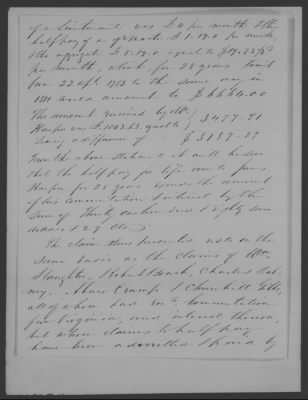 of a Lieutenant was £ 4 per month & the
half pay of a
the aggregate
per month, which for 28 years
from 22 Apl 1783 to the same day in
1811 would amount to $ 6664.00
The amount received by
Harper was equal to 3477.71
leaving a difference of $ 3187.29
From the above statement it will be seen
that the half pay for life
Harper for 28 years exceeds the amount
of his commutation & interest by the
sum of Thirty one hundred & eighty seven
dollars & 29 cts.
The claim thus presented rests on the
same basis as the claims of Wm
Slaughter, Charles
Abner Crump & Churchill Gibbs,
all of whom had recd. Commutation
from Virginia, and interest thereon,
but whose claims to half pay
have been admitted & paid by